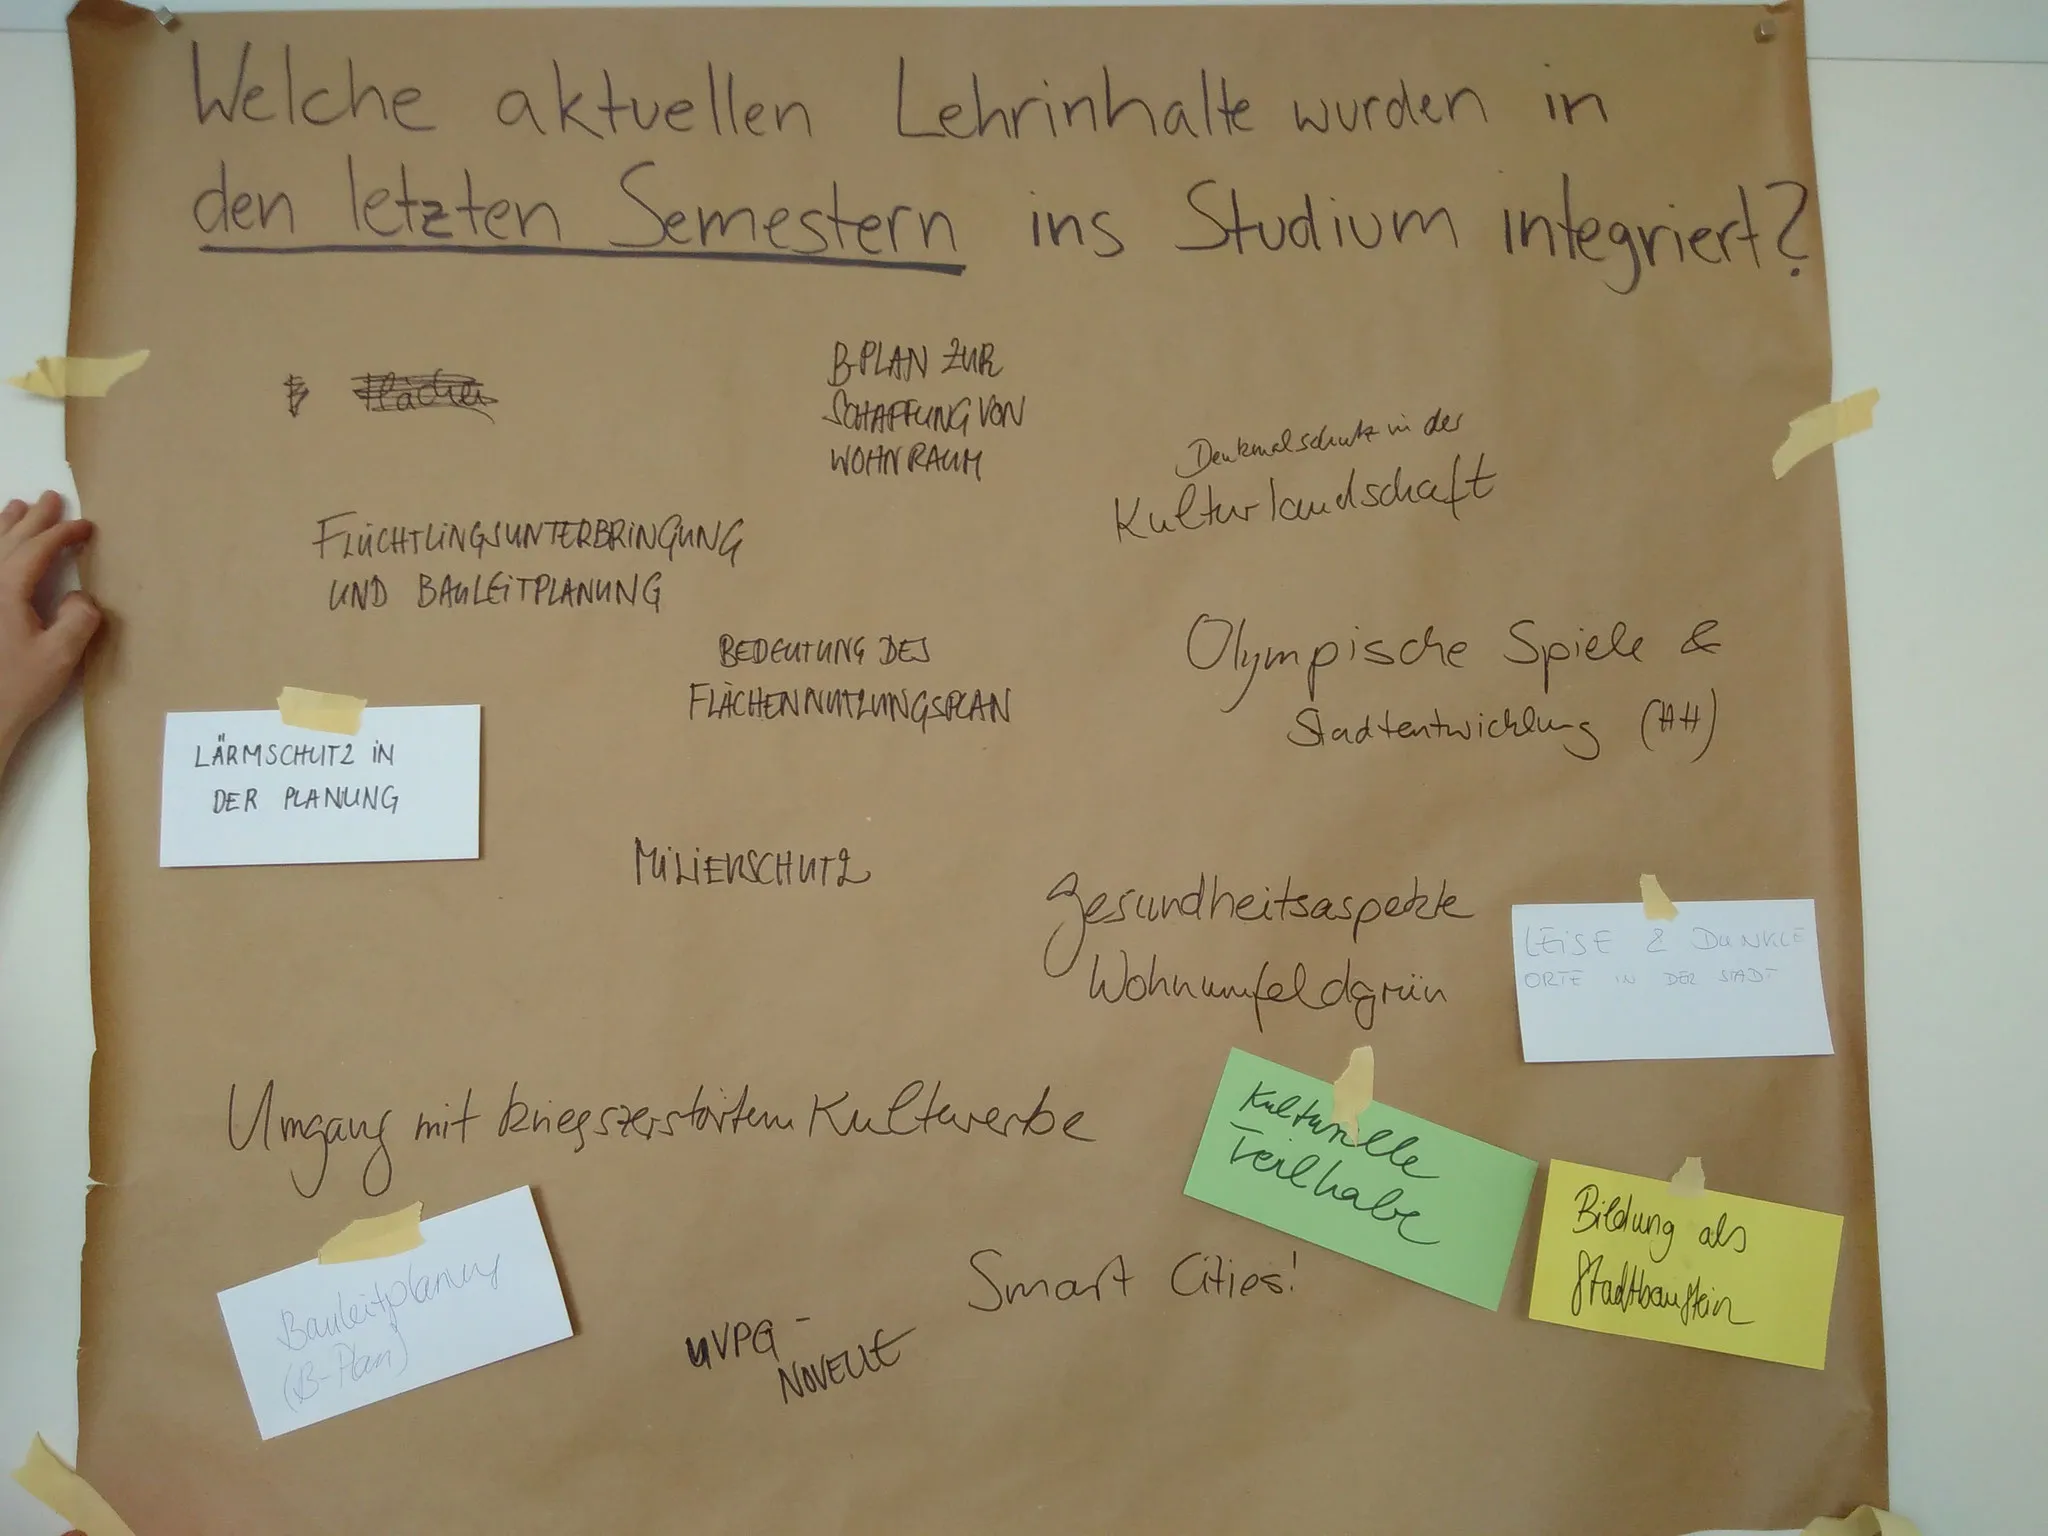 Welche aktuellen Lehrinhalte wurden in
den letzten Semestern ins Studium integriert?
B-PLAN ZUR
SCHAFFUNG VON
WOHNRAUM
Denkmalschutz in der
Kulturlandschaft
FLÜCHTLINGSUNTERBRINGUNG
UND BAULEITPLANUNG
BEDEUTUNG DES
FLÄCHENNUTZUNGSPLAN
Olympische Spiele &
Stadtentwicklung (HH)
LÄRMSCHUTZ IN
DER PLANUNG
MILIEUSCHUTZ
Gesundheitsaspekte
Wohnumfeldgrün
LEISE & DUNKLE
ORTE IN DER STADT
Umgang mit kriegszerstörtem Kulturerbe
Kulturelle
Teilhabe
Bildung als
Stadtbaustein
Bauleitplanung
(B-Plan)
Smart Cities!
UVPG -
NOVELLE